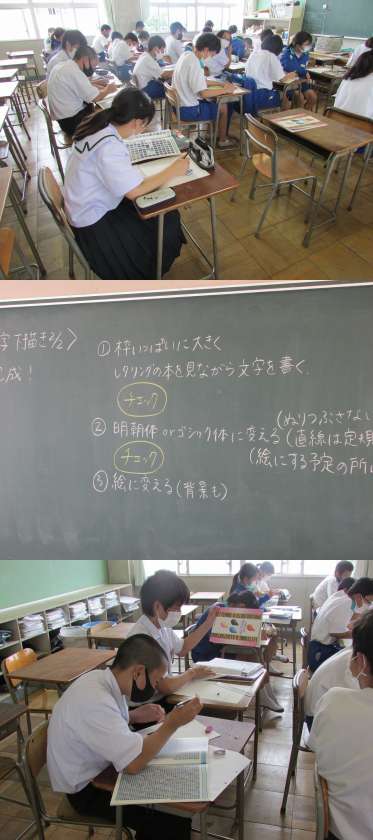 字下描き2/2〉
成!
① 枠いっぱいに大きく
レタリングの本を見ながら文字を書く.
チェック
(ぬりつぶさない
② 明朝体orゴシック体に変える(直線は定規
チェック
(絵にする予定の所
③ 絵に変える(背景も)